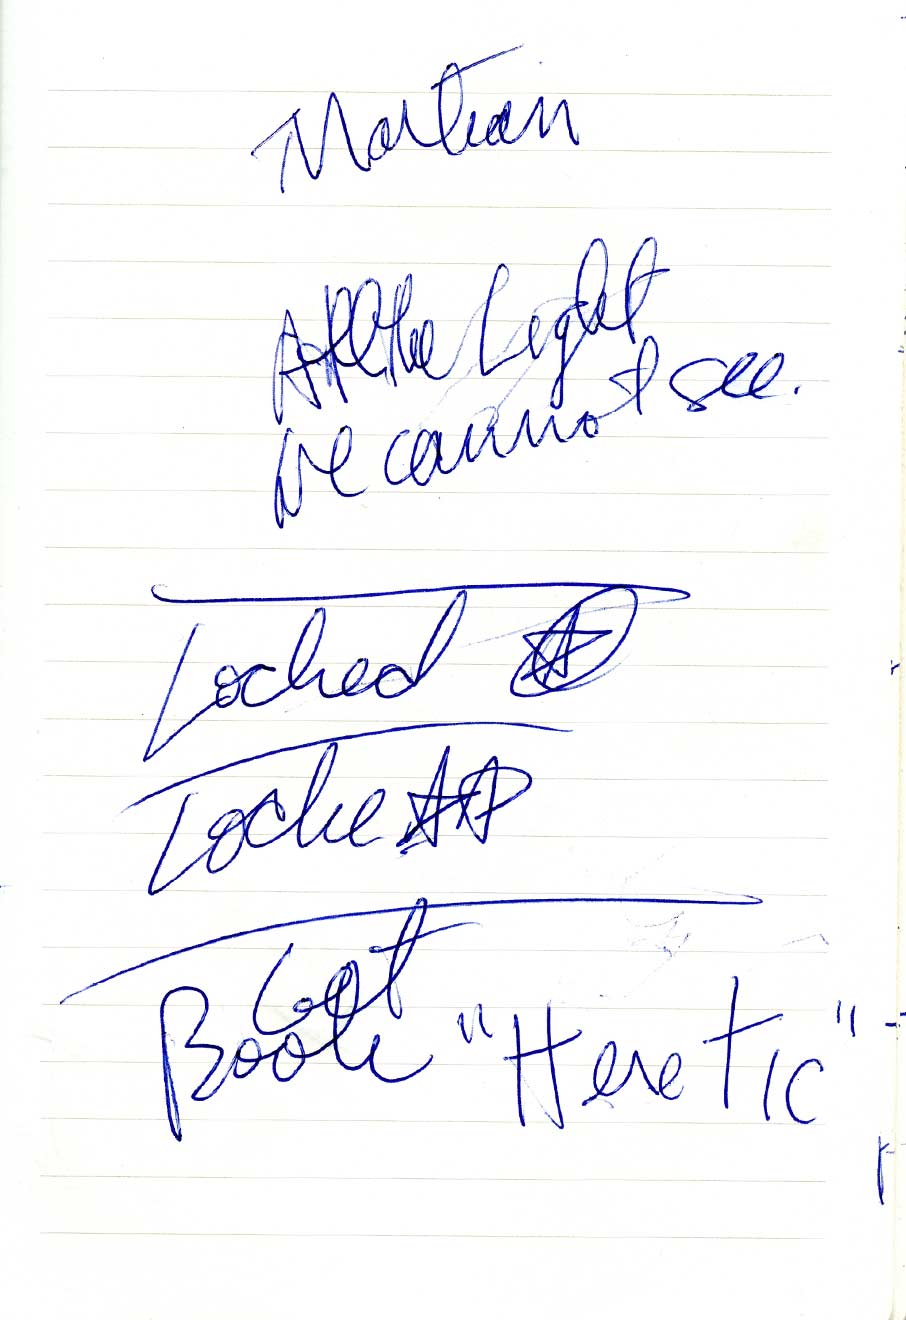 Martian
All the Light
We cannot see.
Locked
Locke
Get
Book "Heretic"